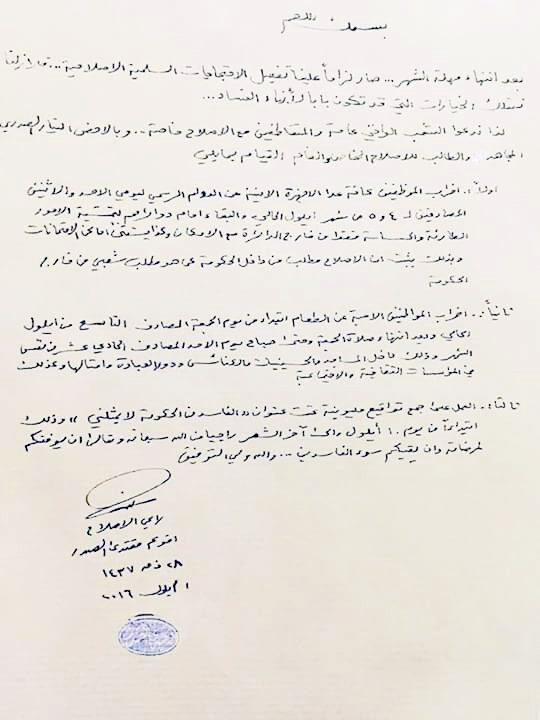 بسمه تعالى
بعد انتهاء مهلة الشهر... صار لزاماً علينا تفعيل الاحتجاجات السلمية الاصلاحية... فما زلنا
نمتلك الخيارات التي قد تكون باباً لإنهاء الفساد...
لذا ندعوا الشعب العراقي عامة والمتعاطفين مع الاصلاح خاصة.. وبالاخص التيار الصدري
المجاهد والطالب للاصلاح الخاص والعام القيام بما يلي
اولاً: اضراب الموظفين كافة عدا الاجهزة الامنية عن الدوام الرسمي ليومي الاحد والاثنين
المصادفين لـ ٤ و ٥ من شهر ايلول الحالي والبقاء امام دوائرهم لتمشية الامور
الطارئة والحساسة فقط من خارج الدائرة مع الامكان وكذا يستثنى اماكن الامتحانات
وبذلك يثبت ان الاصلاح مطلب من داخل الحكومة كما هو مطلب شعبي من خارج
الحكومة
ثانياً: اضراب المواطنين الاحبة عن الطعام ابتداء من يوم الجمعة المصادف التاسع من ايلول
الحالي وبعد انتهاء صلاة الجمعة وحتى صباح يوم الاحد المصادف الحادي عشر من نفس
الشهر وذلك داخل المساجد والحسينيات والكنائس ودور العبادة وامثالها وكذلك
في المؤسسات الثقافية والاجتماعية
ثالثاً: العمل على جمع تواقيع مليونية تحت عنوان (الفاسد من الحكومة لا يمثلني) وذلك
ابتداءً من يوم ١٠ أيلول والى آخر الشهر راجياً من الله سبحانه وتعالى ان يوفقكم
لمرضاته وان يقيكم سوء الفاسدين... والله ولي التوفيق
داعي الاصلاح
اخوكم مقتدى الصدر
٢٨ ذ ق ١٤٣٧
١ ايلول ٢٠١٦